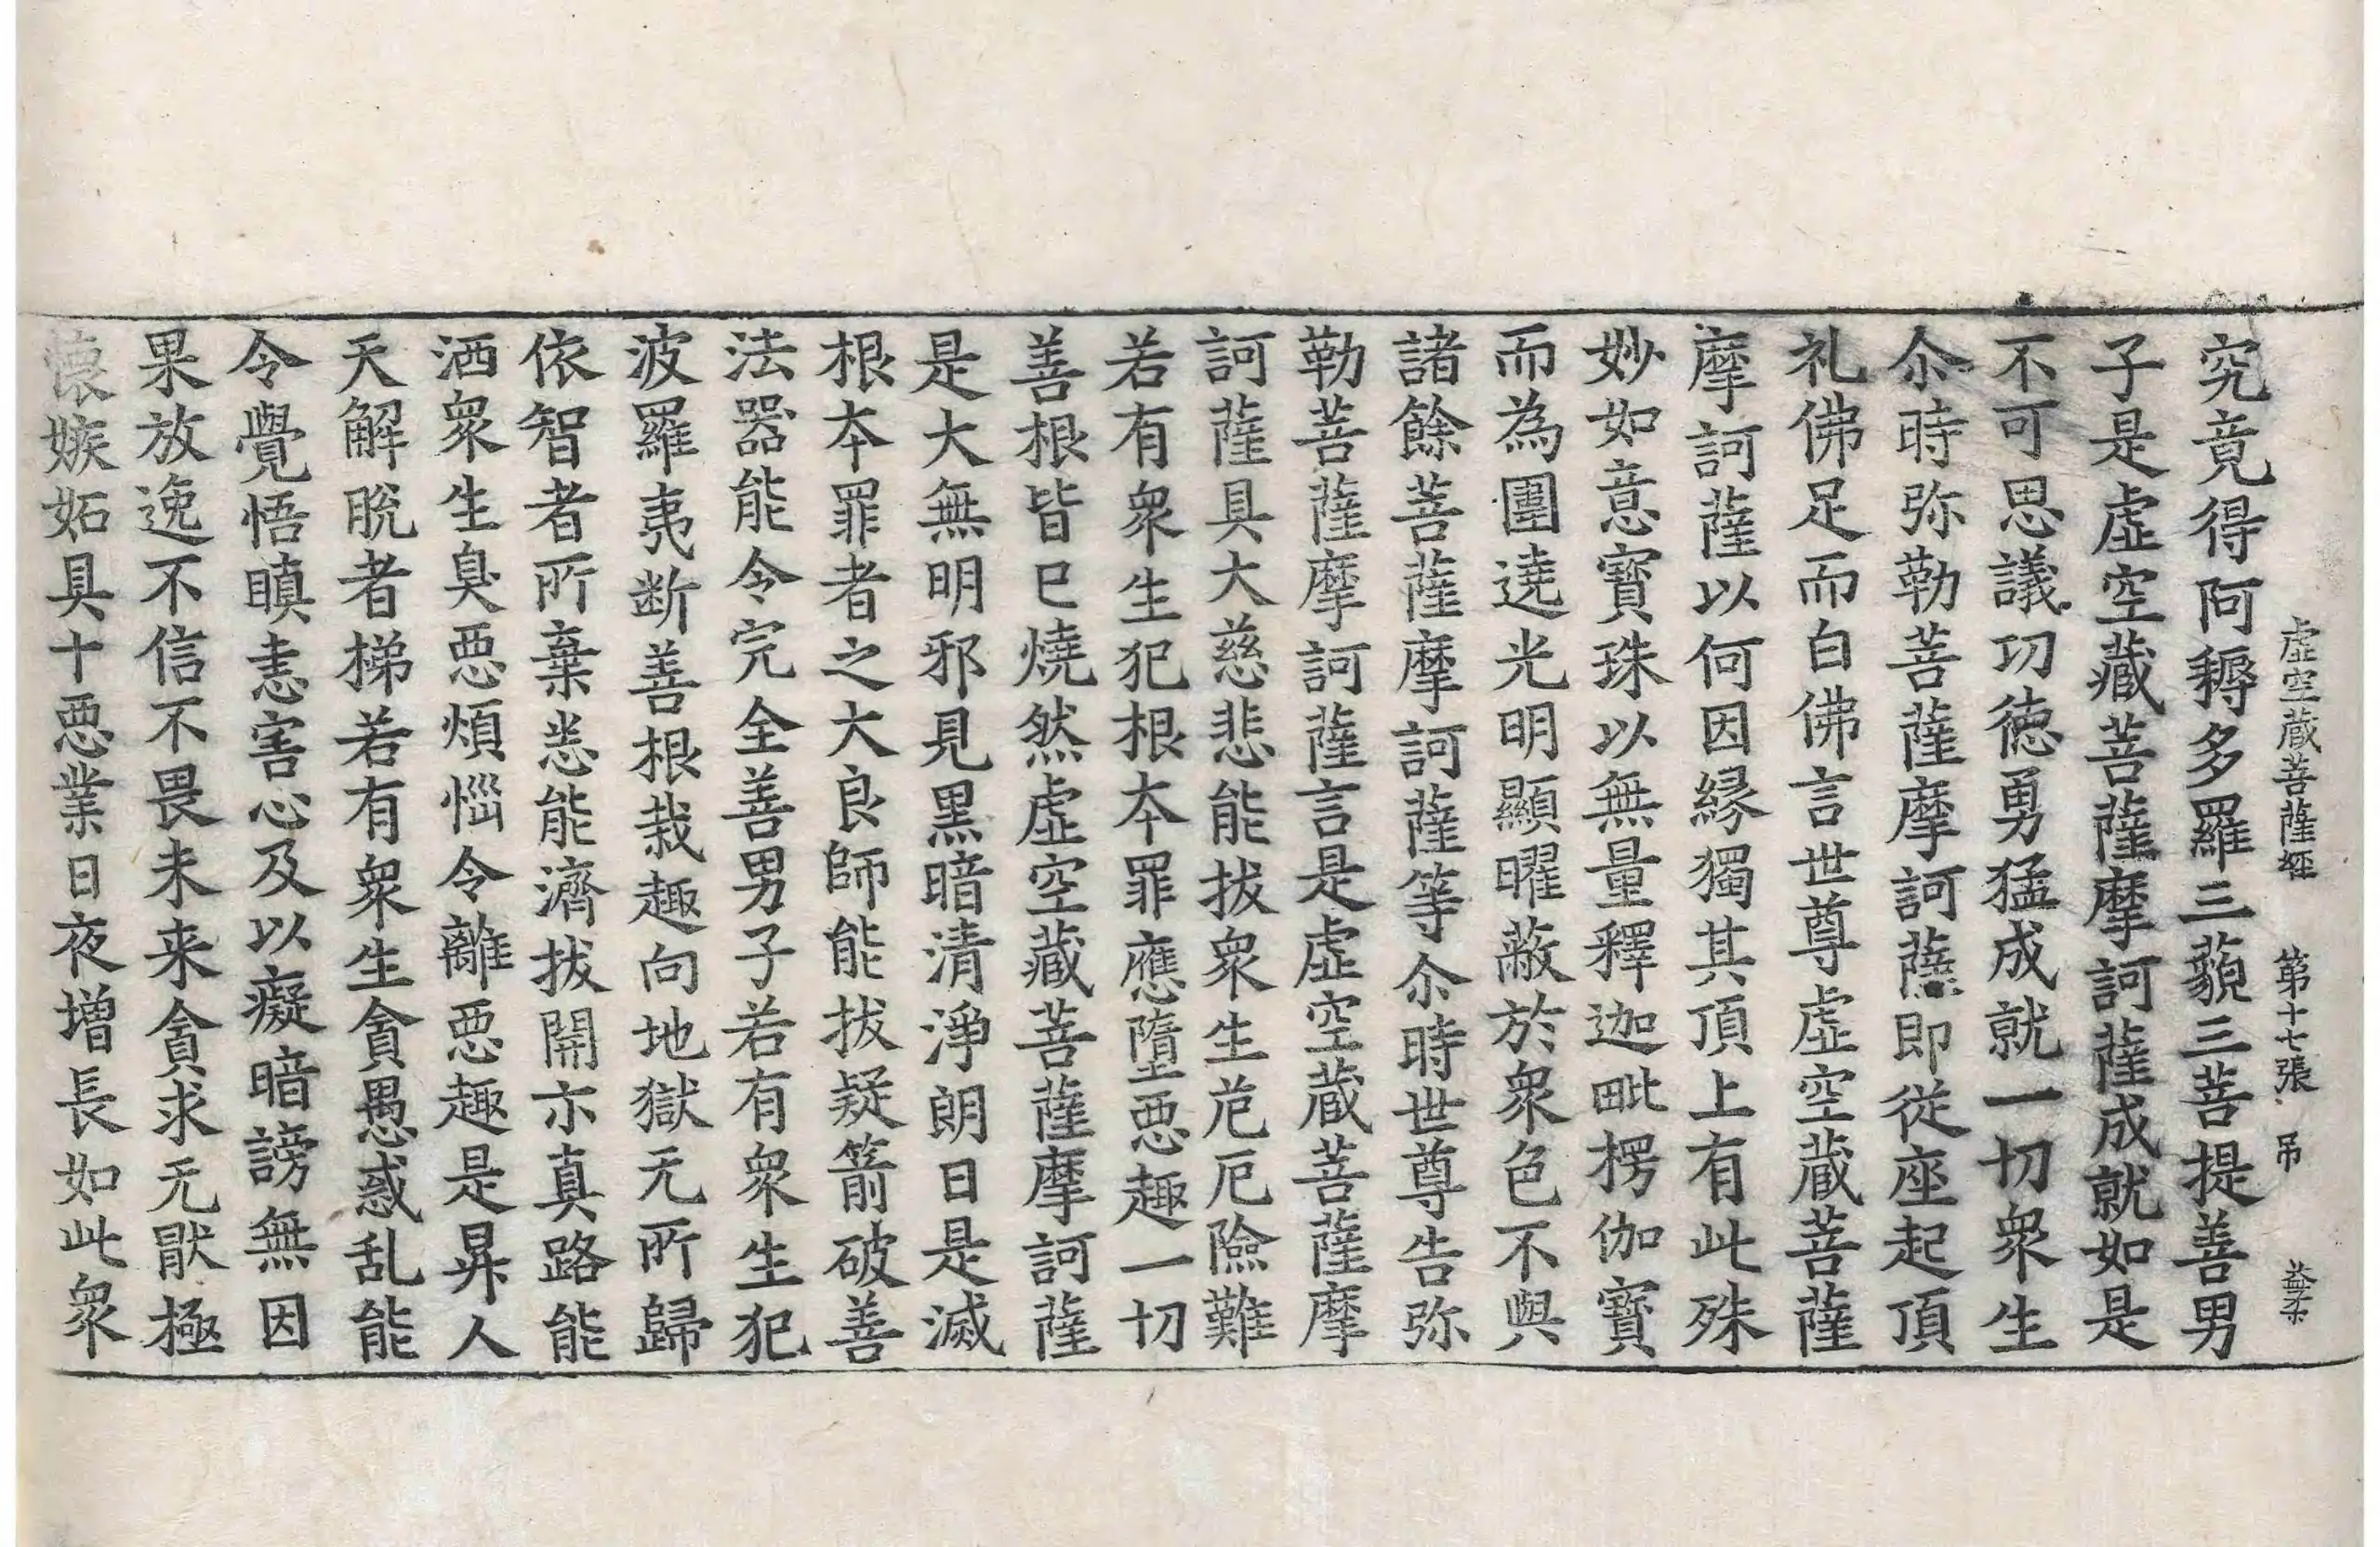 虛空藏菩薩經 第十七張 吊
究竟得阿耨多羅三藐三菩提善男
子是虛空藏菩薩摩訶薩成就如是
不可思議功德勇猛成就一切衆生
尒時弥勒菩薩摩訶薩即從座起頂
礼佛足而白佛言世尊虛空蔵菩薩
摩訶薩以何因縁獨其頂上有此殊
妙如意寶珠以無量釋迦毗楞伽寶
而為圍遶光明顯曜蔽於衆色不與
諸餘菩薩摩訶薩等尒時世尊告弥
勒菩薩摩訶薩言是虛空蔵菩薩摩
訶薩具大慈悲能拔衆生危厄險難
若有衆生犯根本罪應墮惡趣一切
善根皆已燒然虛空藏菩薩摩訶薩
是大無明邪見黑暗清淨朗日是滅
根本罪者之大良師能拔疑箭破善
法器能令完全善男子若有衆生犯
波羅夷断善根栽趣向地獄无所歸
依智者所棄悉能濟拔開示真路能
洒衆生臭惡煩惱令離惡趣是昇人
天解脫者梯若有衆生貪愚惑乱能
令覺悟瞋恚害心及以癡暗謗無因
果放逸不信不畏未来貪求无猒極
懷嫉妬具十惡業日夜增長如此衆